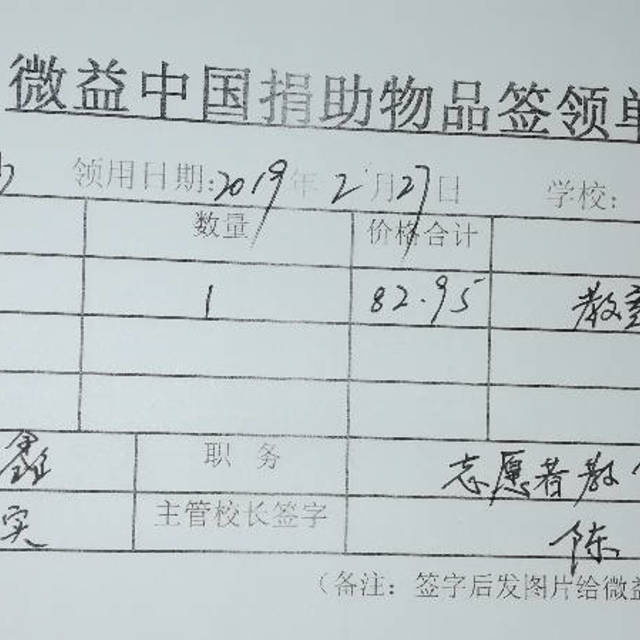 微益中国捐助物品签领单
领用日期:2019年2月27日 学校:
数量 价格合计
1 82.95 教室
鑫 职务 志愿者教
实 主管校长签字 陈
(备注:签字后发图片给微益